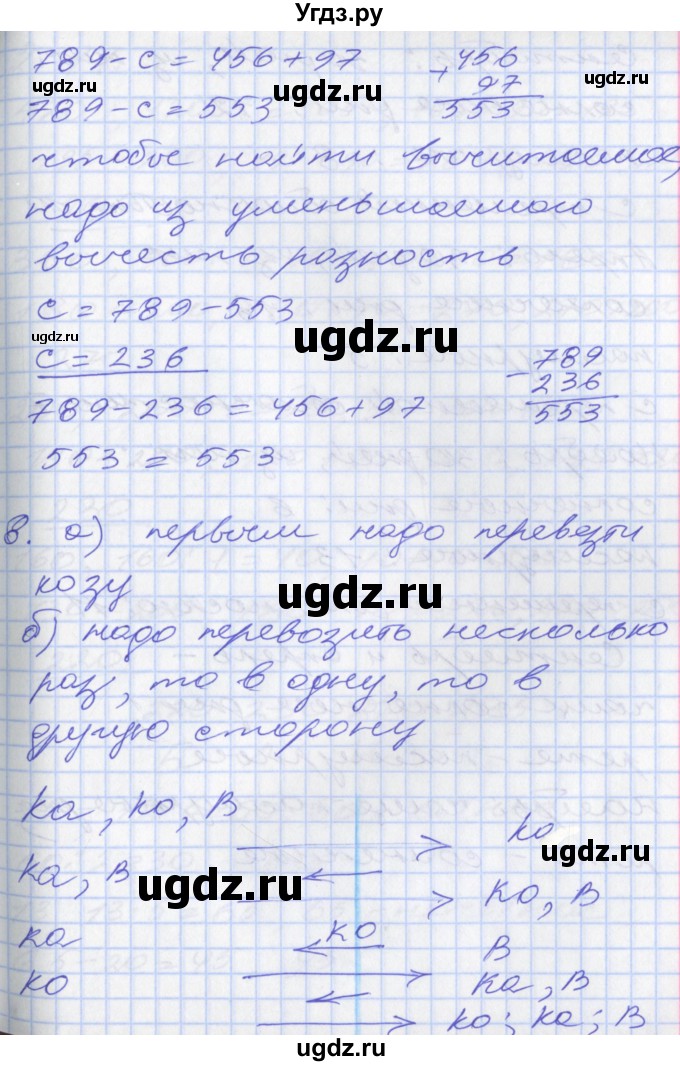 Угдз.ру
789-с = 456+97
456
+ 97
553
ugdz.ru
ugdz.ru
ugdz.ru
789-с = 553
чтобы найти вычитаемое,
надо из уменьшаемого
вычесть разность
с = 789-553
ugdz.ru
ugdz.ru
с = 236
- 789
236
553
789-236 = 456+97
553 = 553
8. а) первым надо перевезти
козу
ugdz.ru
б) надо перевозить несколько
раз, то в одну, то в
другую сторону
ка, ко, в
ко
ugdz.ru
ка, в
ugdz.ru
ко, в
ка
ко
в
ко
ка, в
ко; ка; в
ugdz.ru